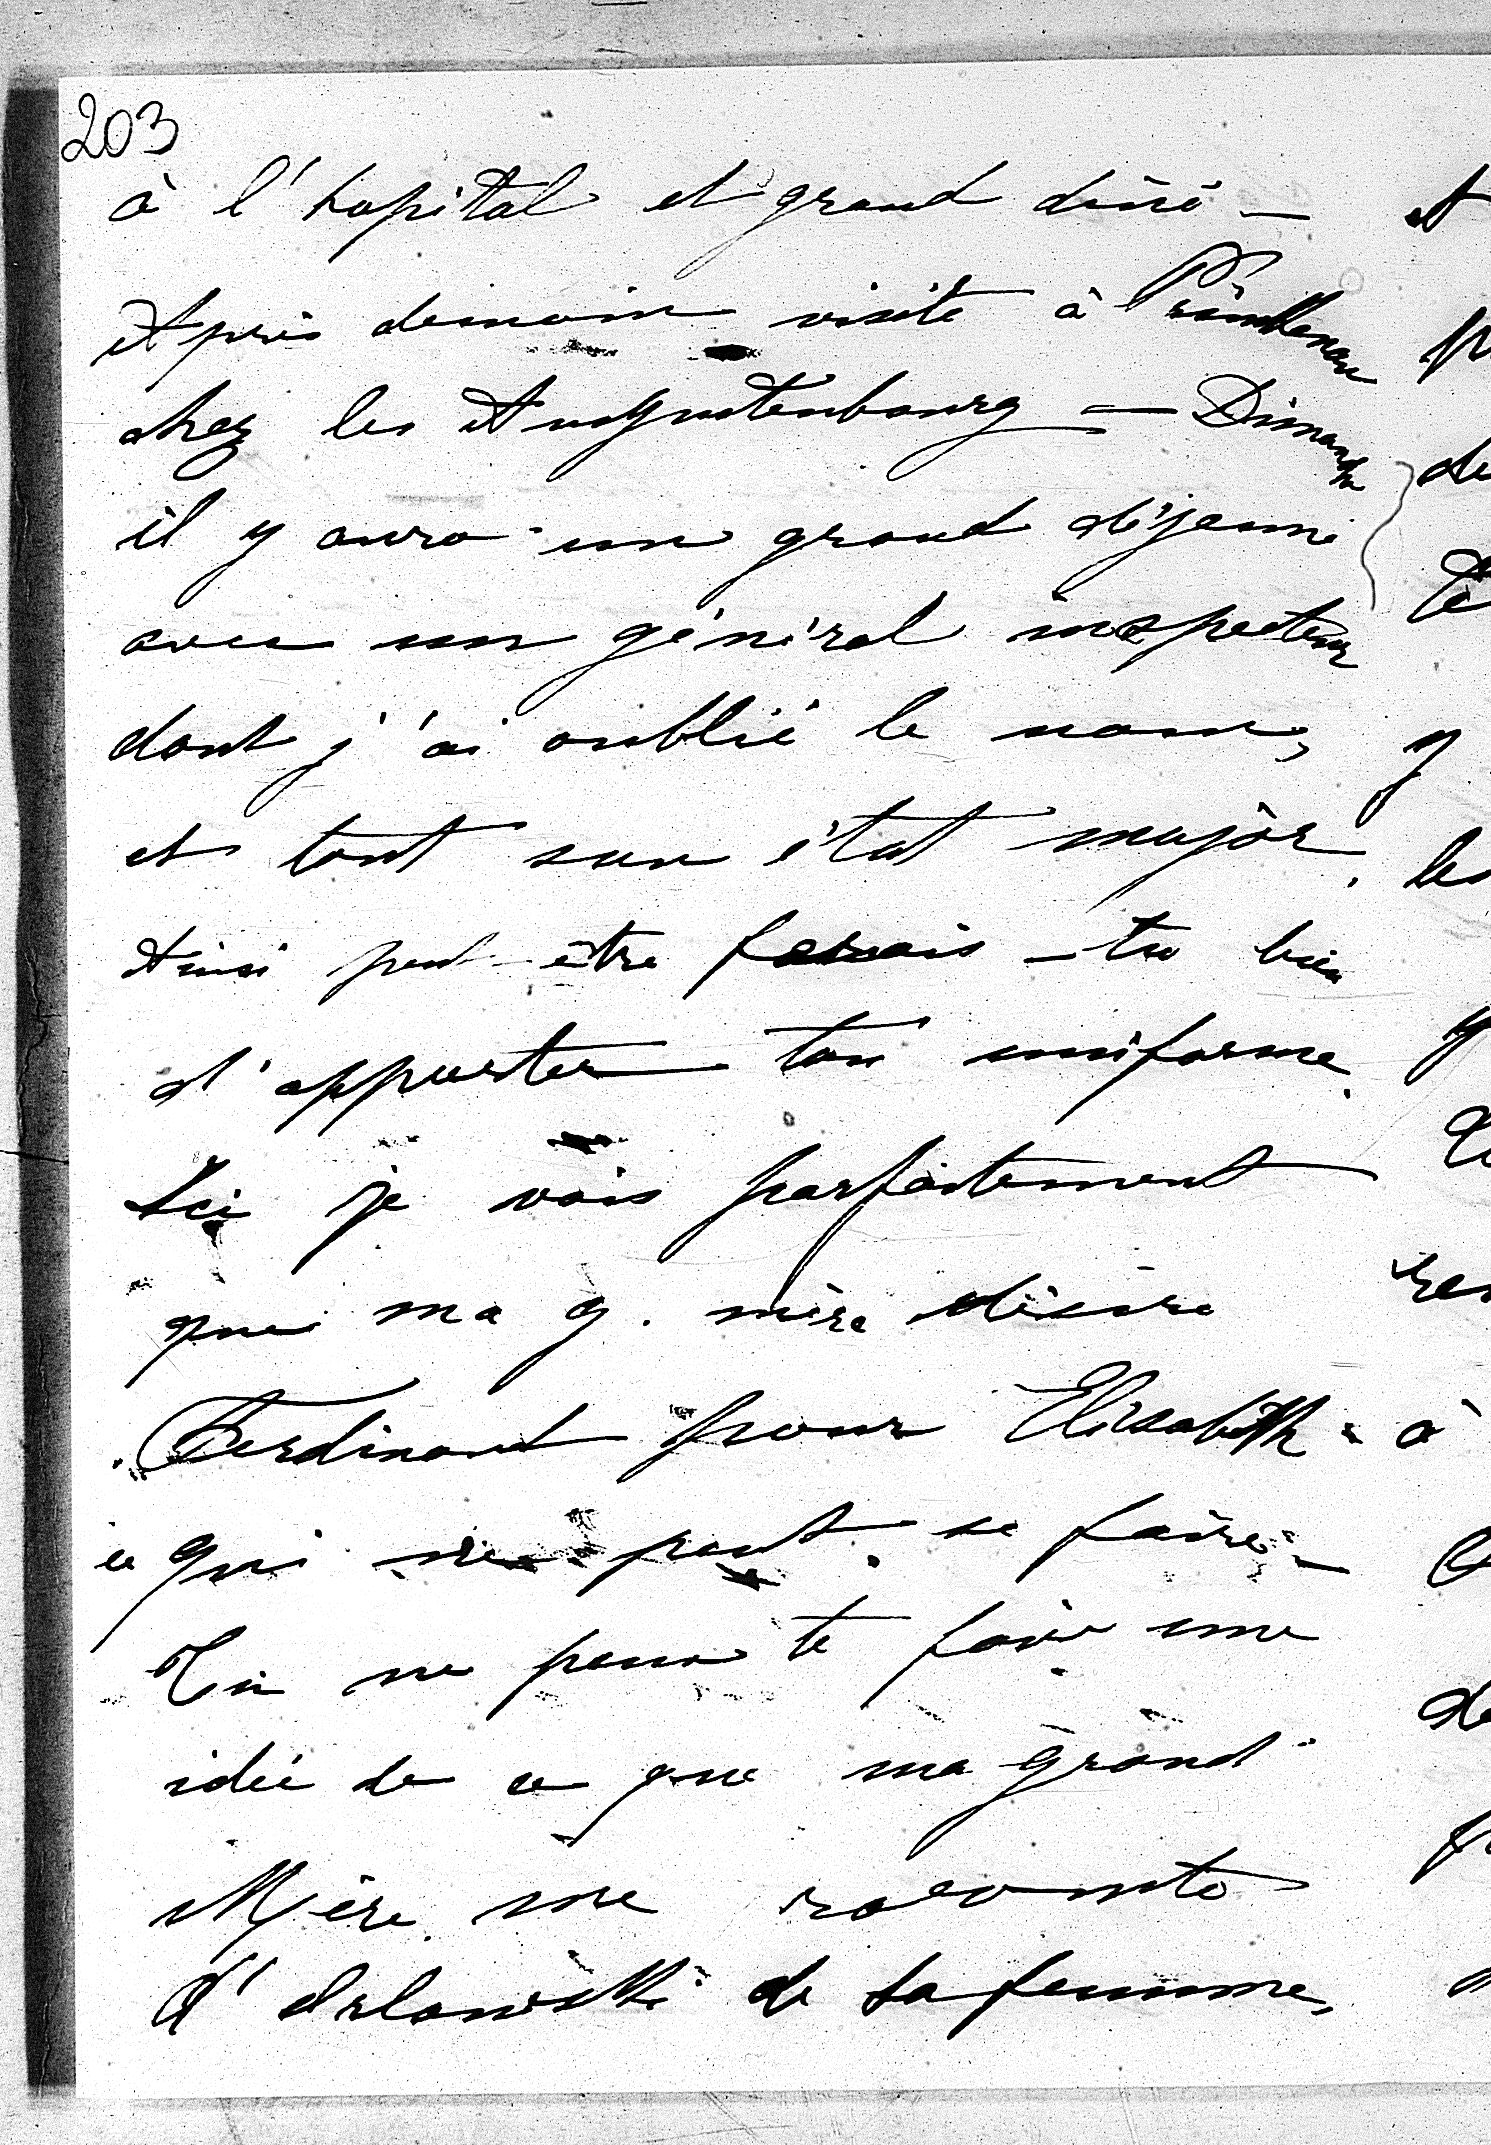 203
à l'hopital et grand dîné —
Après demain visite à Primkenau
chez les Augustenbourg — Dimanche
il y aura un grand déjeuné
avec un général inspecteur
dont j'ai oublié le nom,
et tout son état major.
Ainsi peut-être ferais-tu bien
d'apporter ton uniforme.
Ici je vois parfaitement
que ma g. mère désire
Ferdinand pour Elisabeth -
ce qui ne peut se faire —
Tu ne peux te faire une
idée de ce que ma grand
Mère me raconte
d'Orlowski de sa femme,